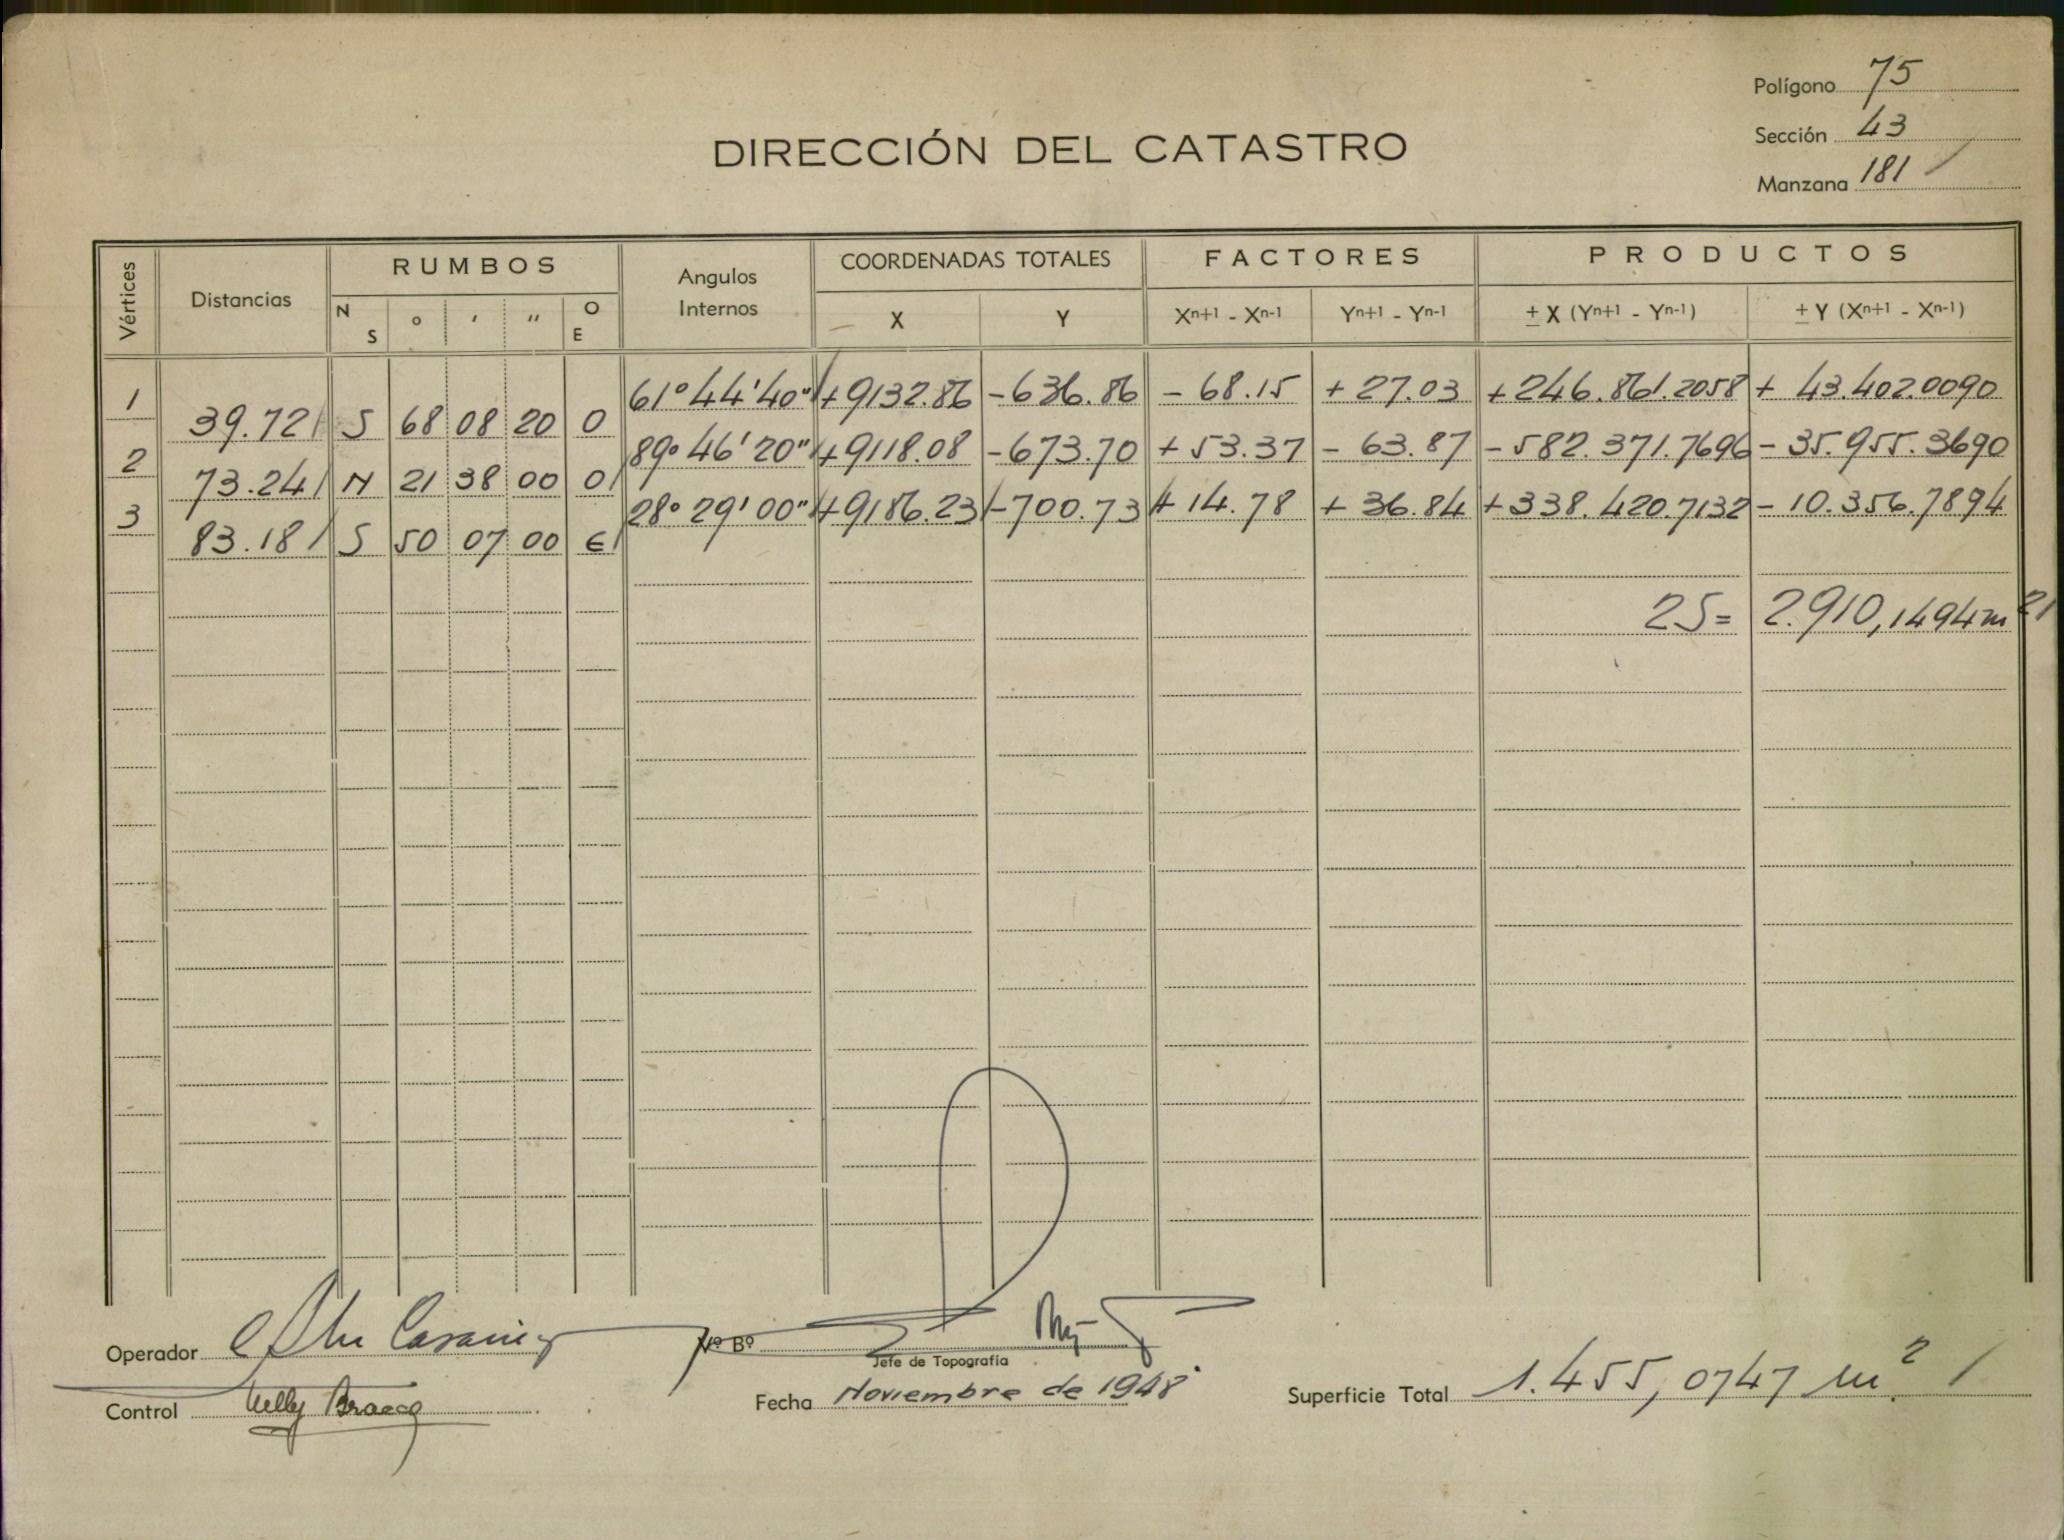 Polígono 75
Sección 43
Manzana 181 /
DIRECCIÓN DEL CATASTRO
Vértices Distancias RUMBOS Angulos Internos COORDENADAS TOTALES FACTORES PRODUCTOS
N S ° ' " O E X Y Xn+1 - Xn-1 Yn+1 - Yn-1 ± X (Yn+1 - Yn-1) ± Y (Xn+1 - Xn-1)
1 61° 44' 40" +9132.86 -636.86 - 68.15 + 27.03 +246.861.2058 + 43.402.0090
39.72 / S 68 08 20 O
2 89° 46' 20" +9118.08 -673.70 + 53.37 - 63.87 -582.371.7696 - 35.955.3690
73.24 / N 21 38 00 O /
3 28° 29' 00" +9186.23 -700.73 + 14.78 + 36.84 +338.420.7132 - 10.356.7894
83.18 / S 50 07 00 E /
2S= 2.910,1494 m2 /
Operador
Vº Bº
Jefe de Topografía
Control Nelly Bracco
Fecha Noviembre de 1948
Superficie Total 1.455,0747 m.2 /